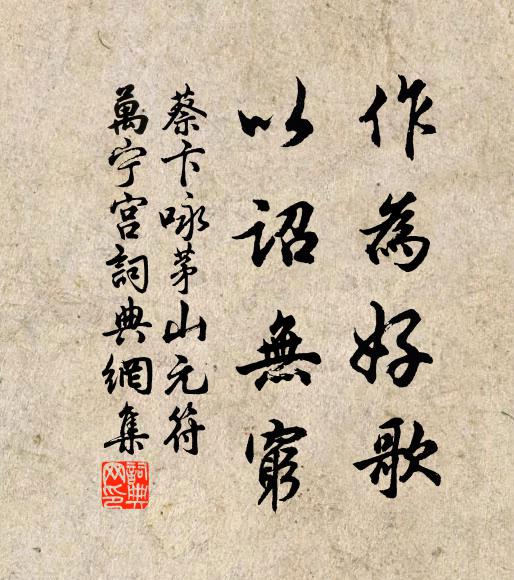 作為好歌
以詔無窮
蔡卞咏茅山元符
萬宁宮詞典網集
詞典网印